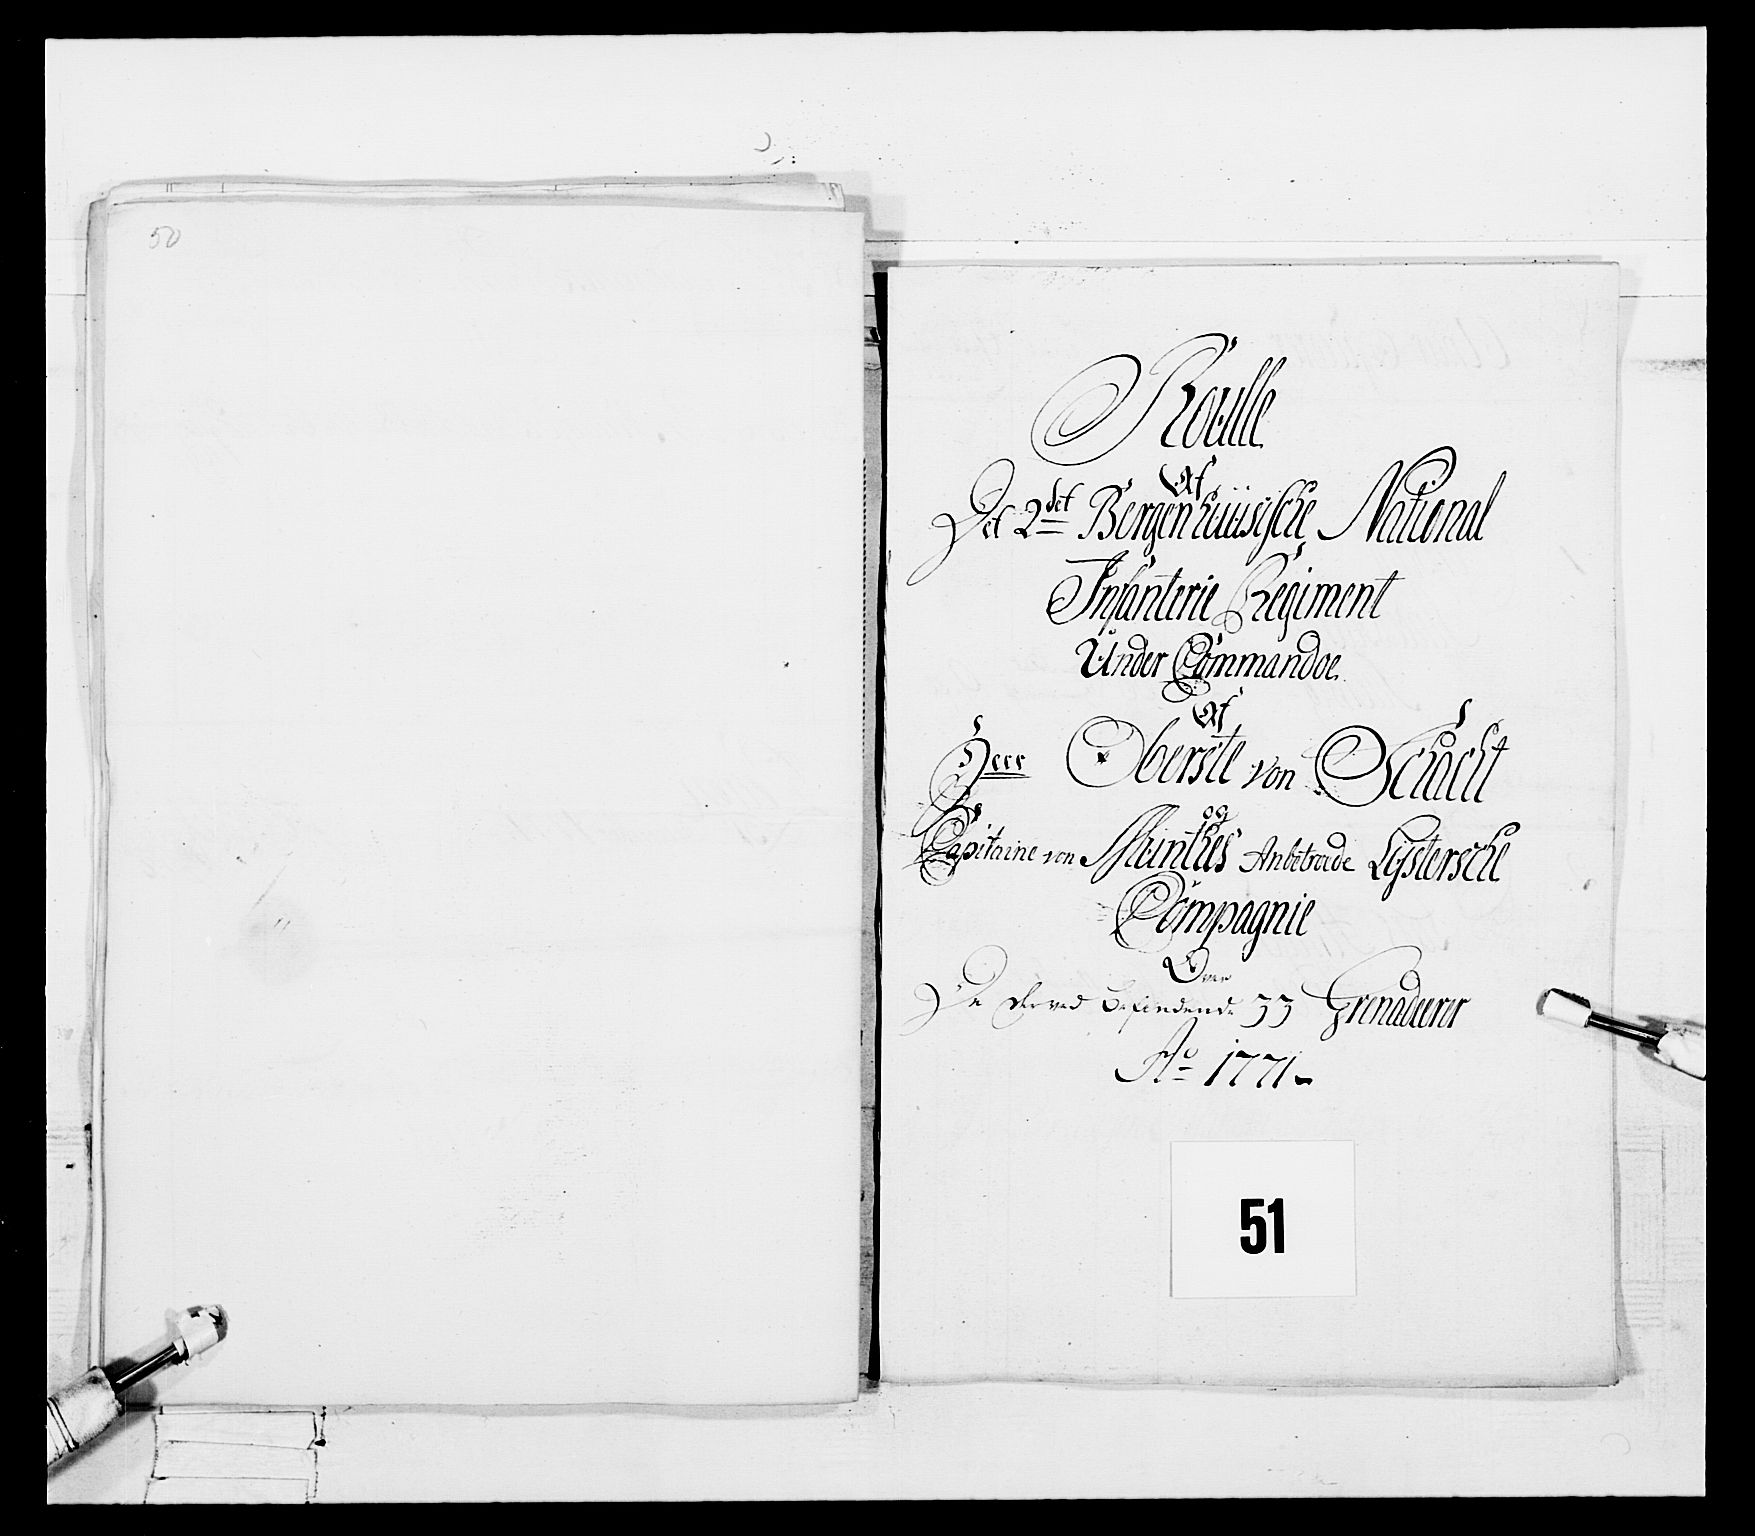 50
Roulle
Af
Det 2det Bergenhuusische National
Infanterie Regiment
Under Commandoe
Af
Herr Oberste von Schacht
og
Capitaine von Munthes Anbetroede Lystersche
Compagnie
Over
De derved befindende 33 Grenaderer
Ao 1771
51